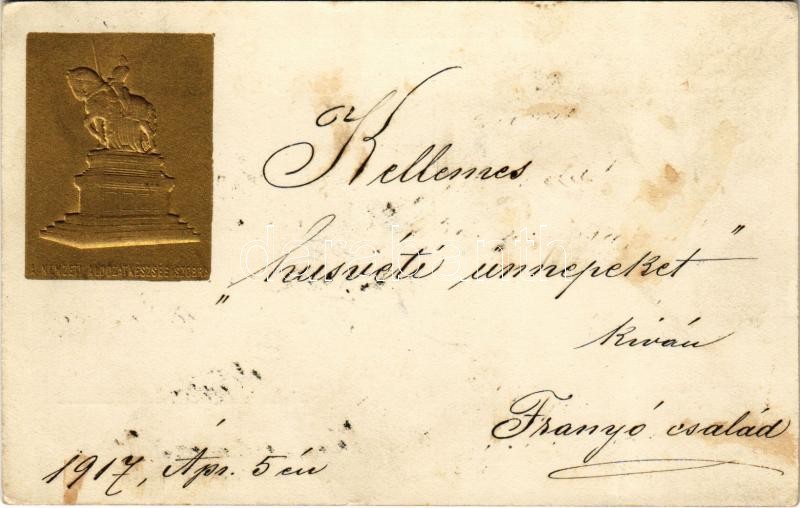 A NEMZETI ÁLDOZATKÉSZSÉG SZOBRA
Kellemes
„husvéti ünnepeket"
kiván
Franyó család
1917, Ápr. 5 én